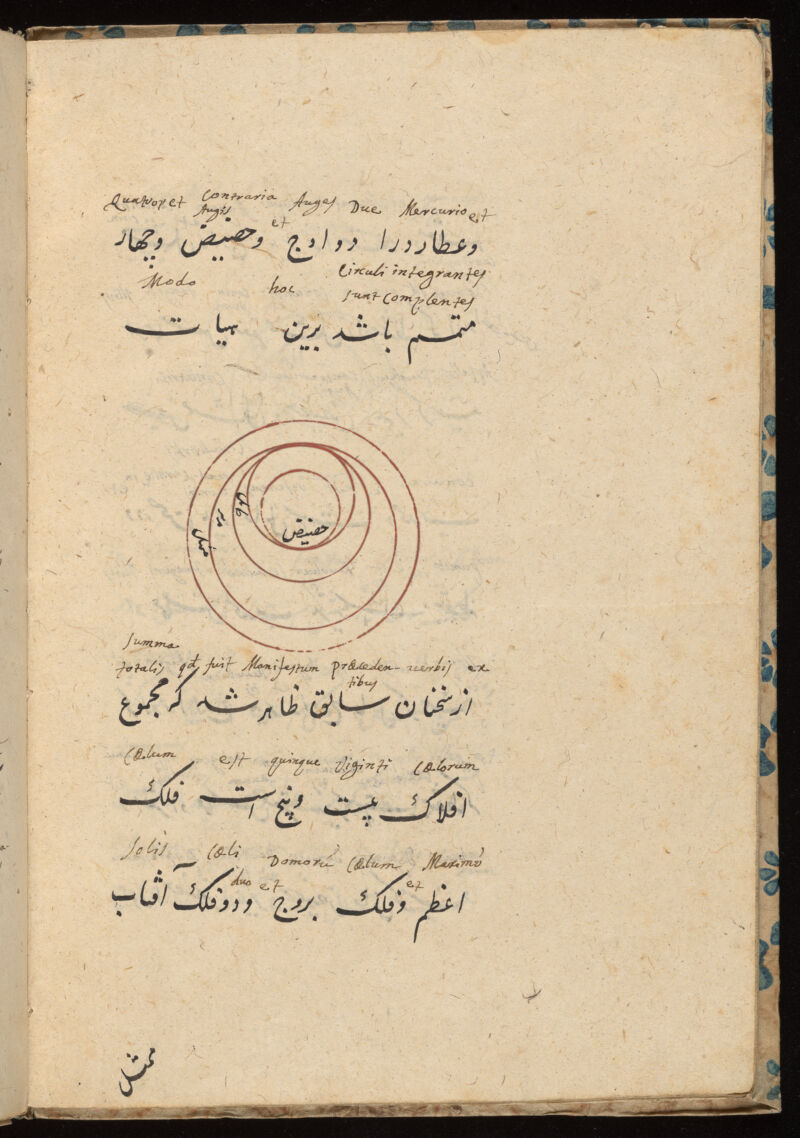 Quatuor et Contraria Auges Due Mercurio est
Augis et
وعطاردرا دو اوج وحضیض وچهار
Circuli integrantes
Modo hoc sunt complentes
متمم باشد برین هیات
حضیض
Summa
totalis qd fuit Manifestum præceden- verbis ex
tibus
از سخنان سابق ظاهر شد که مجموع
Cælum est quinque Viginti Cælorum
افلاک بیست وپنج است فلک
Solis Cæli Domorũ Cælum Maximũ
duo et et
اعظم وفلک بروج ودو فلک آفتاب